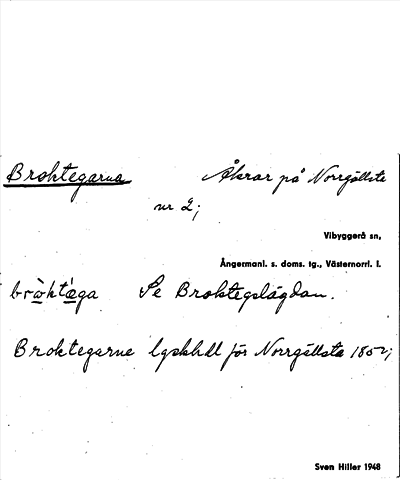 Broktegarna Åkrar på Norrgällsta
nr 2;
Vibyggerå sn,
Ångermanl. s. doms. tg., Västernorrl. l.
bròktæ̀ga Se Broktegslägdan.
Broktegarne lgskhdl för Norrgällsta 1852;
Sven Hiller 1948